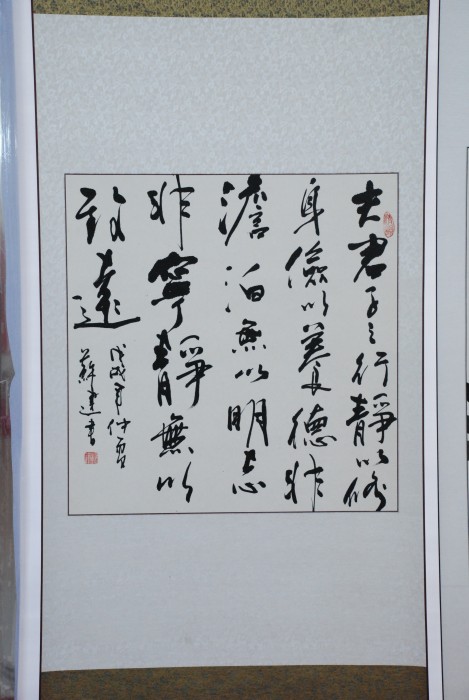 夫君子之行靜以修
身儉以養德非
澹泊無以明志
非寧靜無以
致遠
戊戌年仲夏
蘇建書